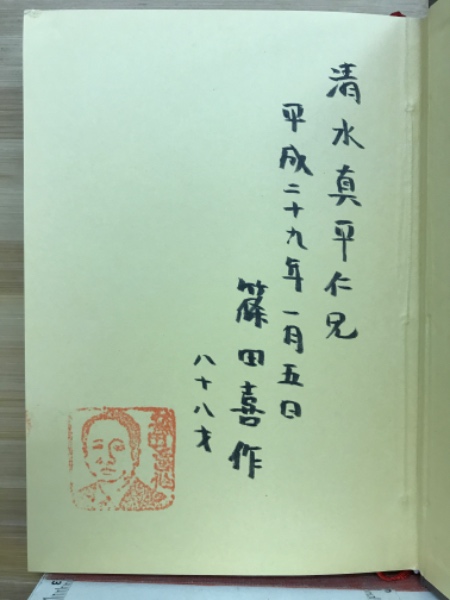 清水真平仁兄
平成二十九年一月五日
篠田喜作
八十八才